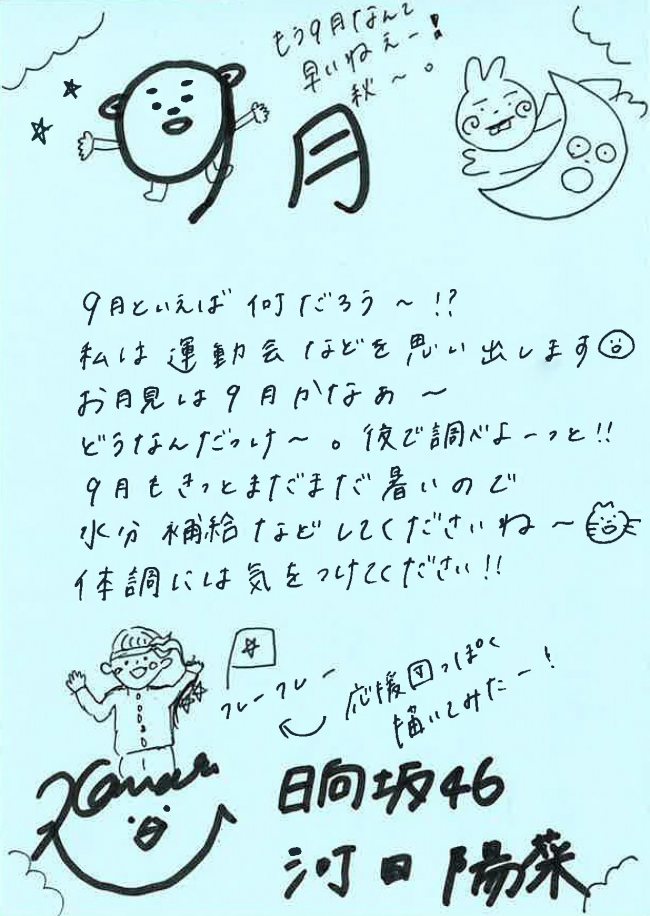 もう9月なんて
早いねぇー!
秋〜。
9月
9月といえば何だろう〜!?
私は運動会などを思い出します
お月見は9月かなぁ〜
どうなんだっけ〜。後で調べよーっと!!
9月もきっとまだまだ暑いので
水分補給などしてくださいね〜
体調には気をつけてください!!
フレーフレー
応援団っぽく
描いてみたー!
Kanar
日向坂46
河田陽菜